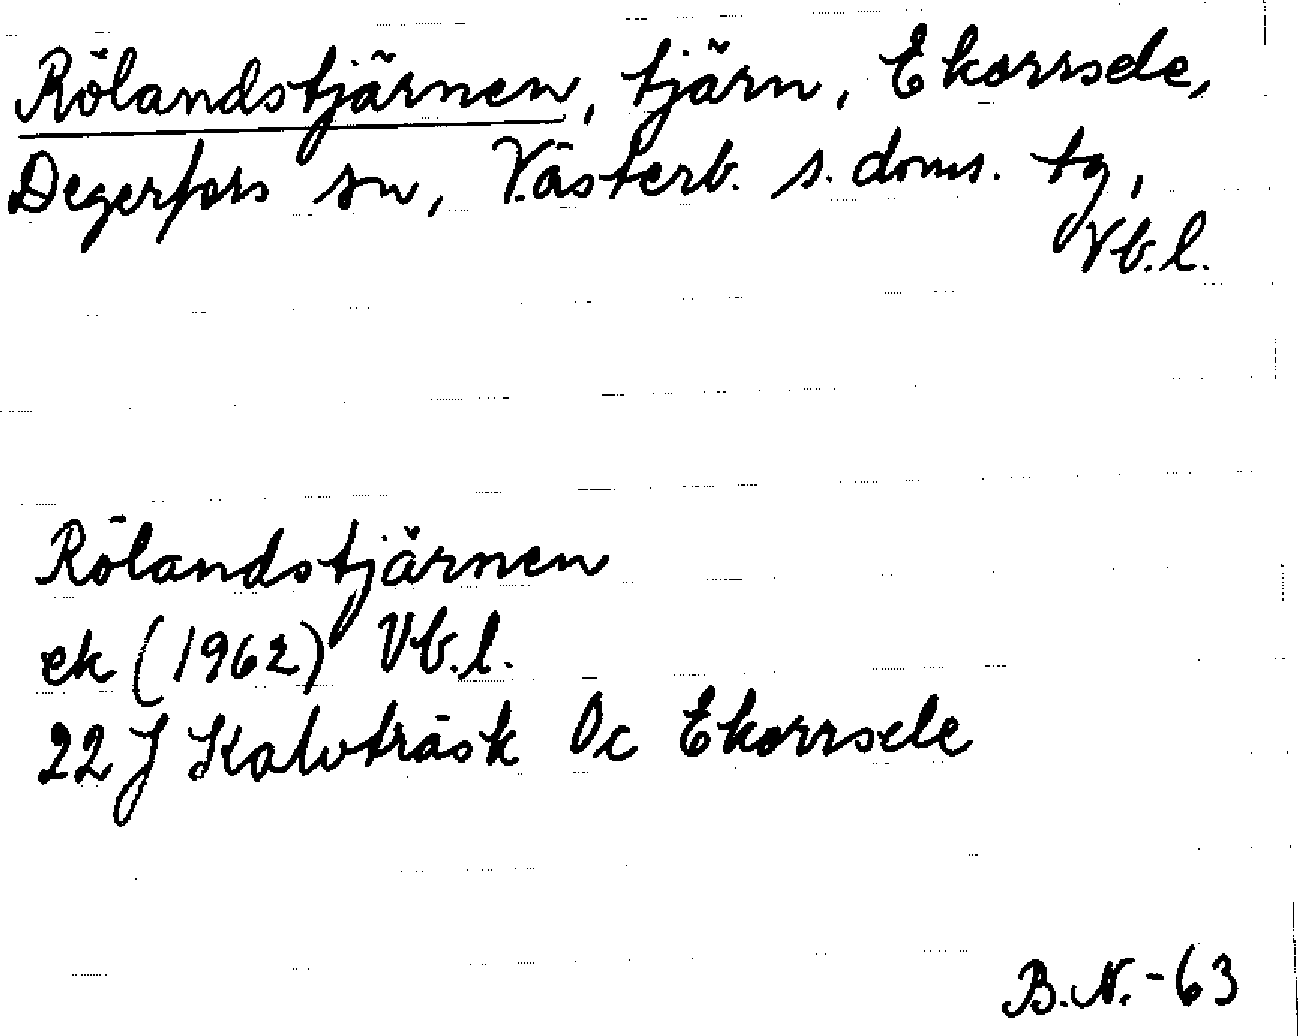 Rölandstjärnen, tjärn, Ekorrsele,
Degerfors sn, Västerb. s. doms. tg,
Vb.l.
Rölandstjärnen
ek (1962) Vb.l.
22 J Kalvträsk 0c Ekorrsele
B.N.-63